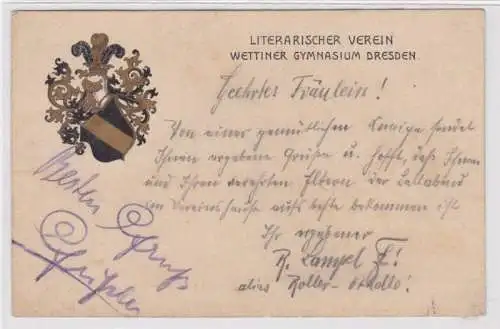 LITERARISCHER VEREIN
WETTINER GYMNASIUM DRESDEN.
Geehrtes Fräulein!
Von einer gemütlichen Kneipe sendet
Ihnen ergebene Grüße u. hofft, daß Ihnen
und Ihren verehrten Eltern der Ballabend
im Vereinshause aufs beste bekommen ist
Ihr ergebener
R. Lampel
alias Roller-Othello!
Besten Gruß